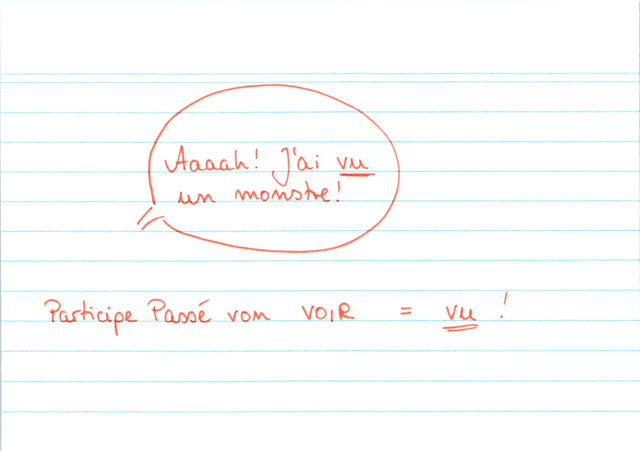 Aaaah! J'ai vu
un monstre!
Participe Passé vom VOIR = vu !